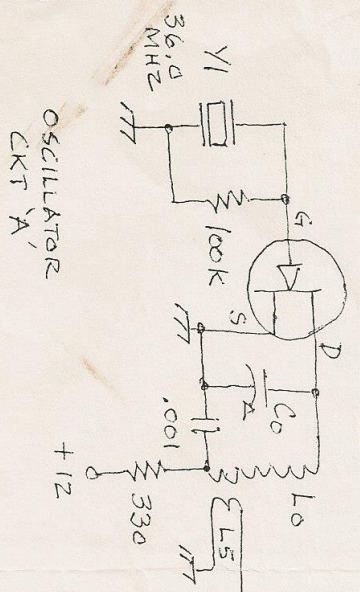 Y1
36.0
MHZ
100K
G
D
S
C0
L0
.001
L5
330
+12
OSCILLATOR
CKT 'A'